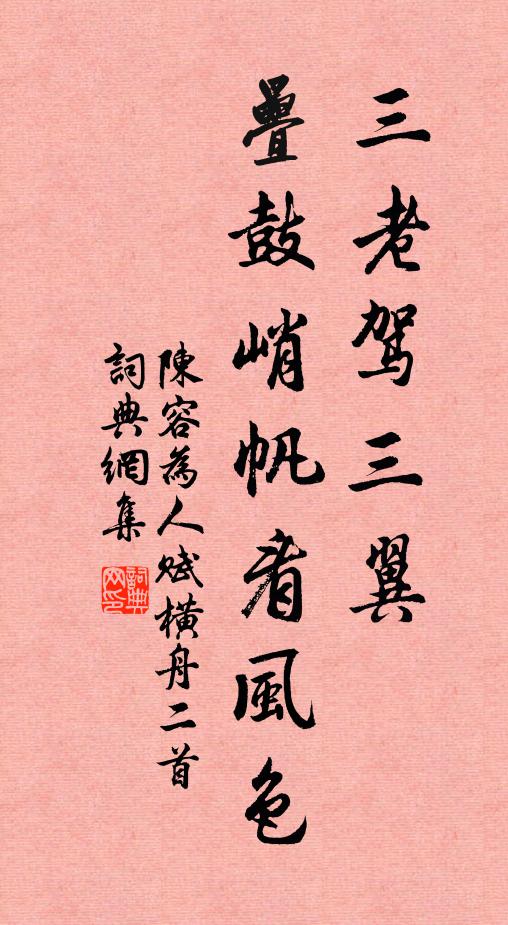 三老驾三翼
疊鼓峭帆看風色
陳容為人賦橫舟二首
詞典網集
詞典网印